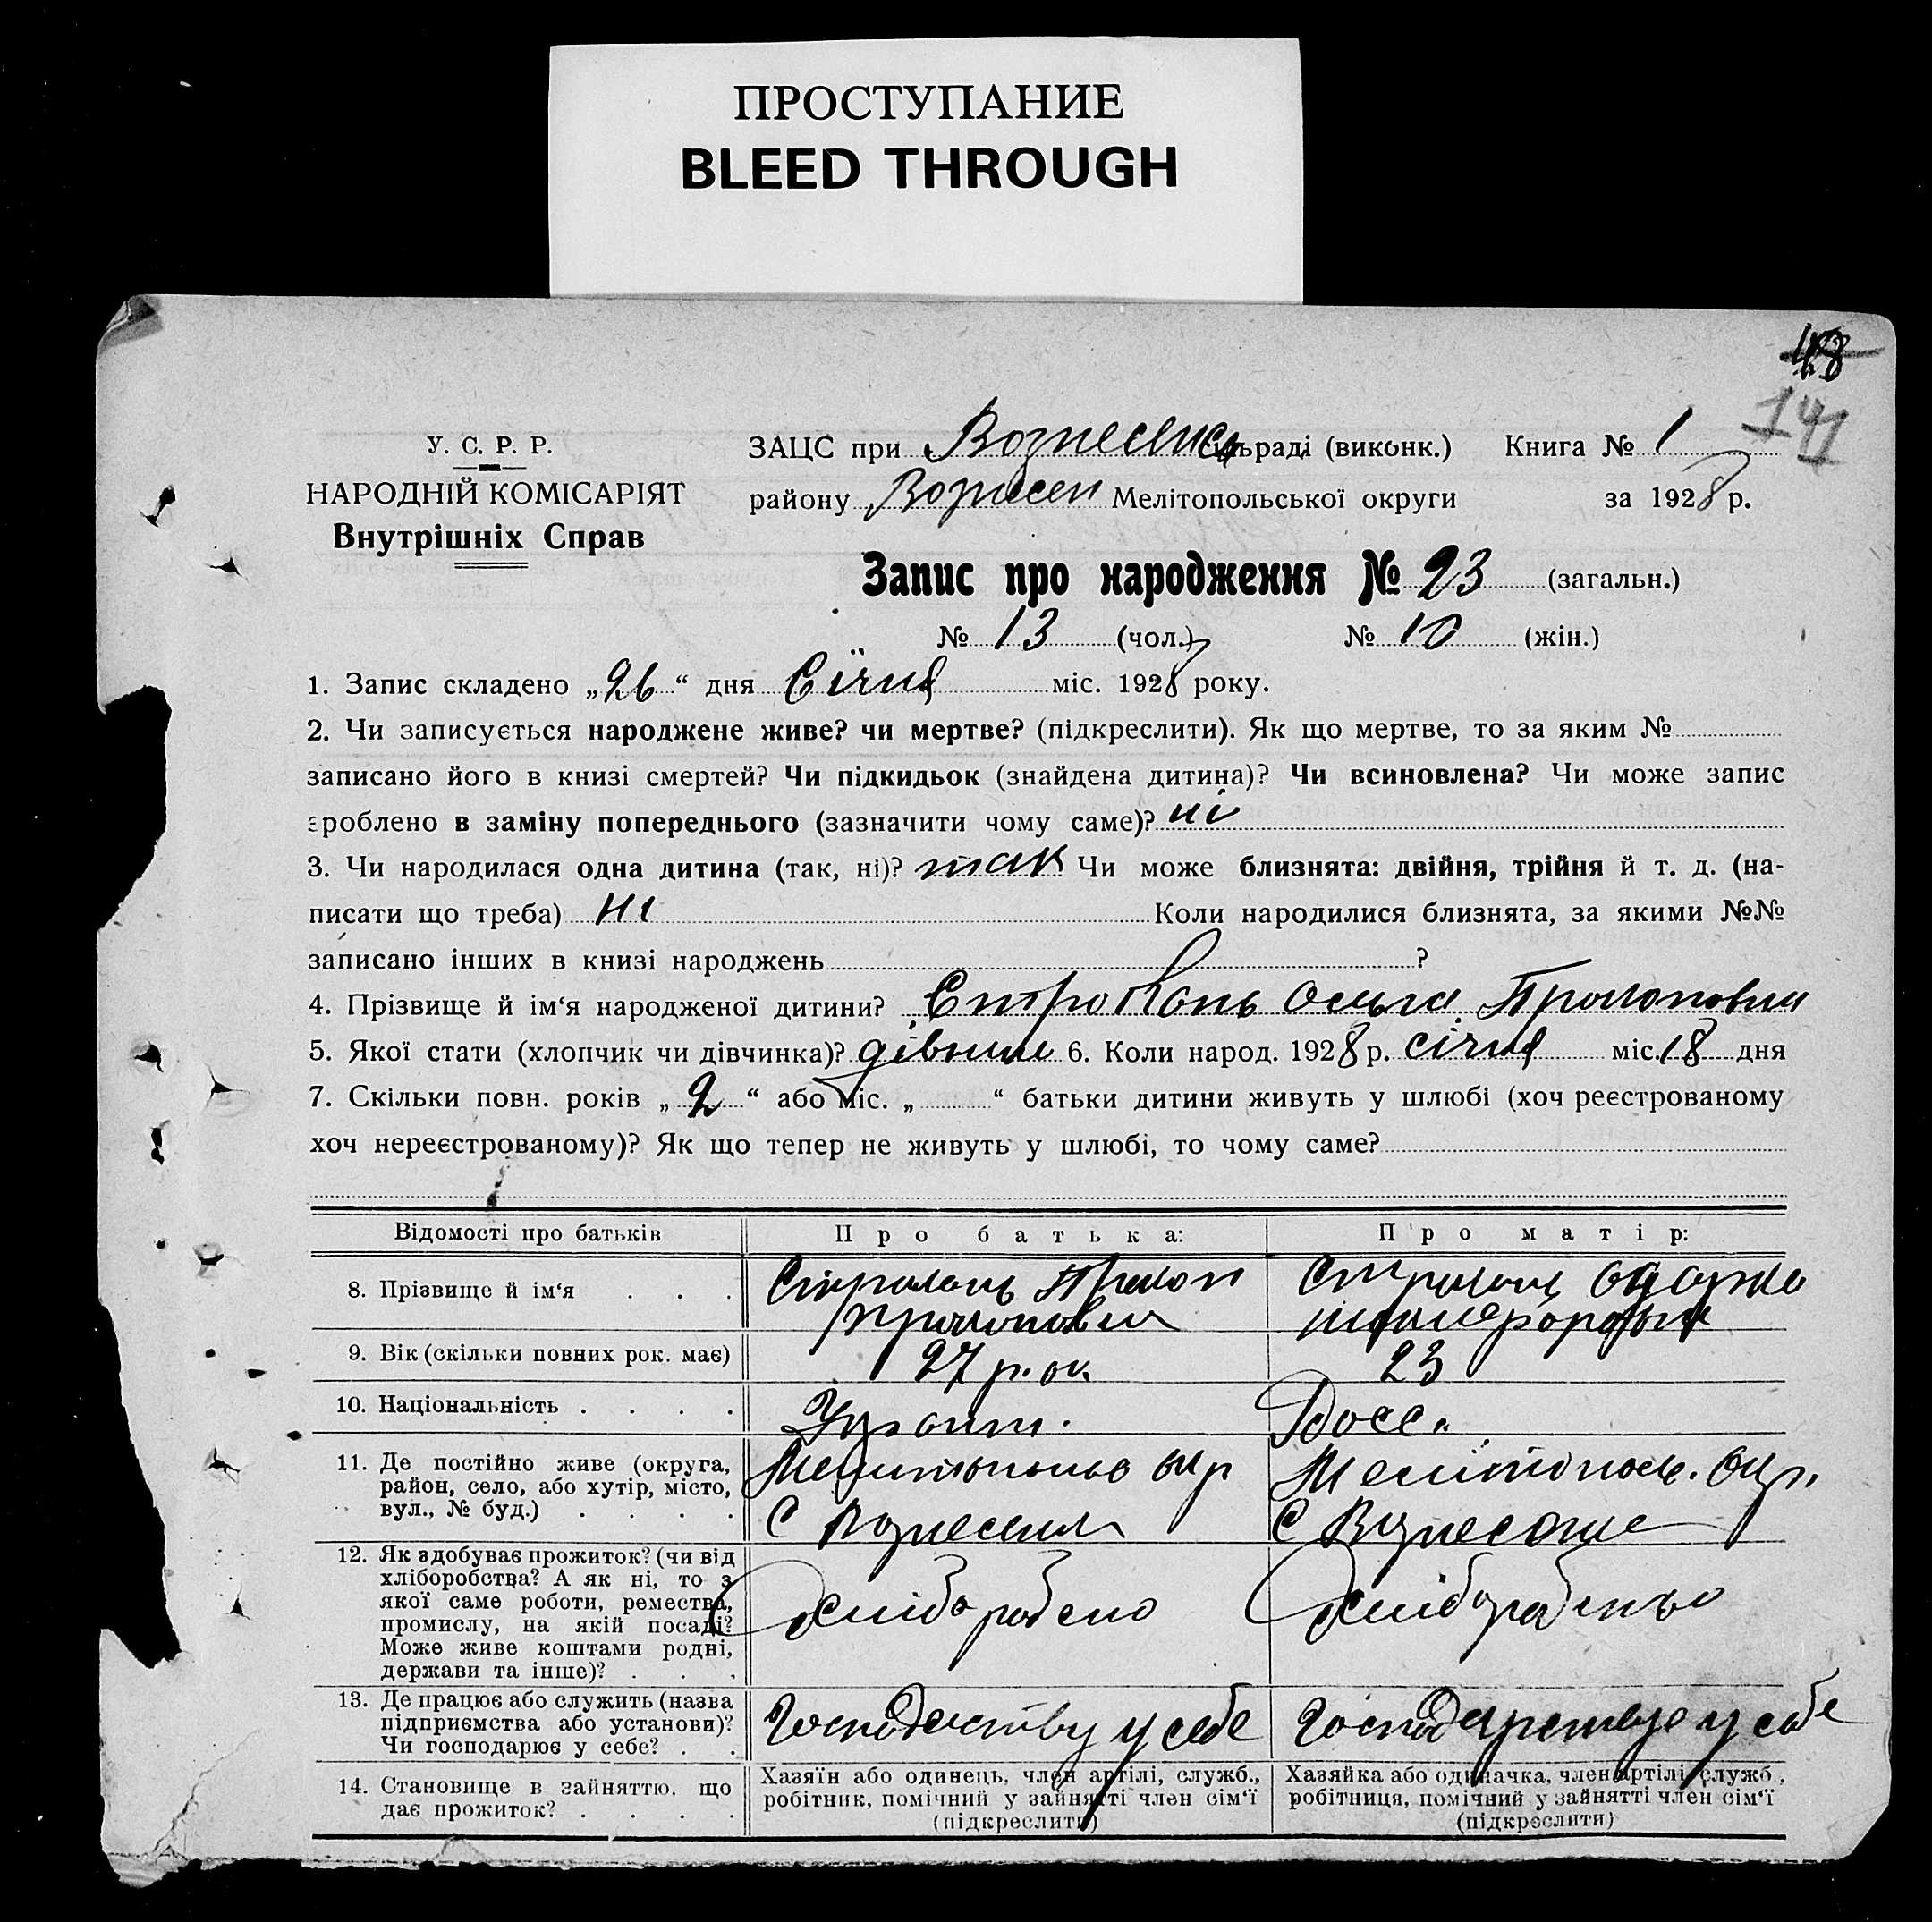 ПРОСТУПАНИЕ
BLEED THROUGH
48
141
У. С. Р. Р.
НАРОДНІЙ КОМІСАРІЯТ
Внутрішніх Справ
ЗАЦС при Вознесенськ сільраді (виконк.) Книга № 1
району Вознесен Мелітопольської округи за 1928 р.
Запис про народження № 23 (загальн.)
№ 13 (чол.) № 10 (жін.)
1. Запис складено „26“ дня Січня міс. 1928 року.
2. Чи записується народжене живе? чи мертве? (підкреслити). Як що мертве, то за яким №
записано його в книзі смертей? Чи підкидьок (знайдена дитина)? Чи всиновлена? Чи може запис
зроблено в заміну попереднього (зазначити чому саме)? ні
3. Чи народилася одна дитина (так, ні)? так Чи може близнята: двійня, трійня й т. д. (на-
писати що треба) ні Коли народилися близнята, за якими №№
записано інших в книзі народжень ?
4. Прізвище й ім‘я народженої дитини? Ольга
5. Якої стати (хлопчик чи дівчинка)? 6. Коли народ. 1928 р. січня міс. 18 дня
7. Скільки повн. років „2“ або міс. „ “ батьки дитини живуть у шлюбі (хоч реєстрованому
хоч нереєстрованому)? Як що тепер не живуть у шлюбі, то чому саме?
Відомості про батьків Про батька: Про матір:
8. Прізвище й ім‘я
9. Вік (скільки повних рок. має) 27 23
10. Національність Росс.
11. Де постійно живе (округа,
район, село, або хутір, місто,
вул., № буд.)
Мелитополь окр Мелітополь. Окр.
С Вознесенка С Вознесенке
12. Як здобуває прожиток? (чи від
хліборобства? А як ні, то з
якої саме роботи, ремества,
промислу, на якій посаді?
Може живе коштами родні,
держави та інше)?
13. Де працює або служить (назва
підприємства або установи)?
Чи господарює у себе?
у себе у себе
14. Становище в зайняттю, що
дає прожиток?
Хазяїн або одинець, член артілі, служб.,
робітник, помічний у зайнятті член сім‘ї
(підкреслити)
Хазяйка або одиначка, член артілі, служб.,
робітниця, помічний у зайнятті член сім‘ї
(підкреслити)